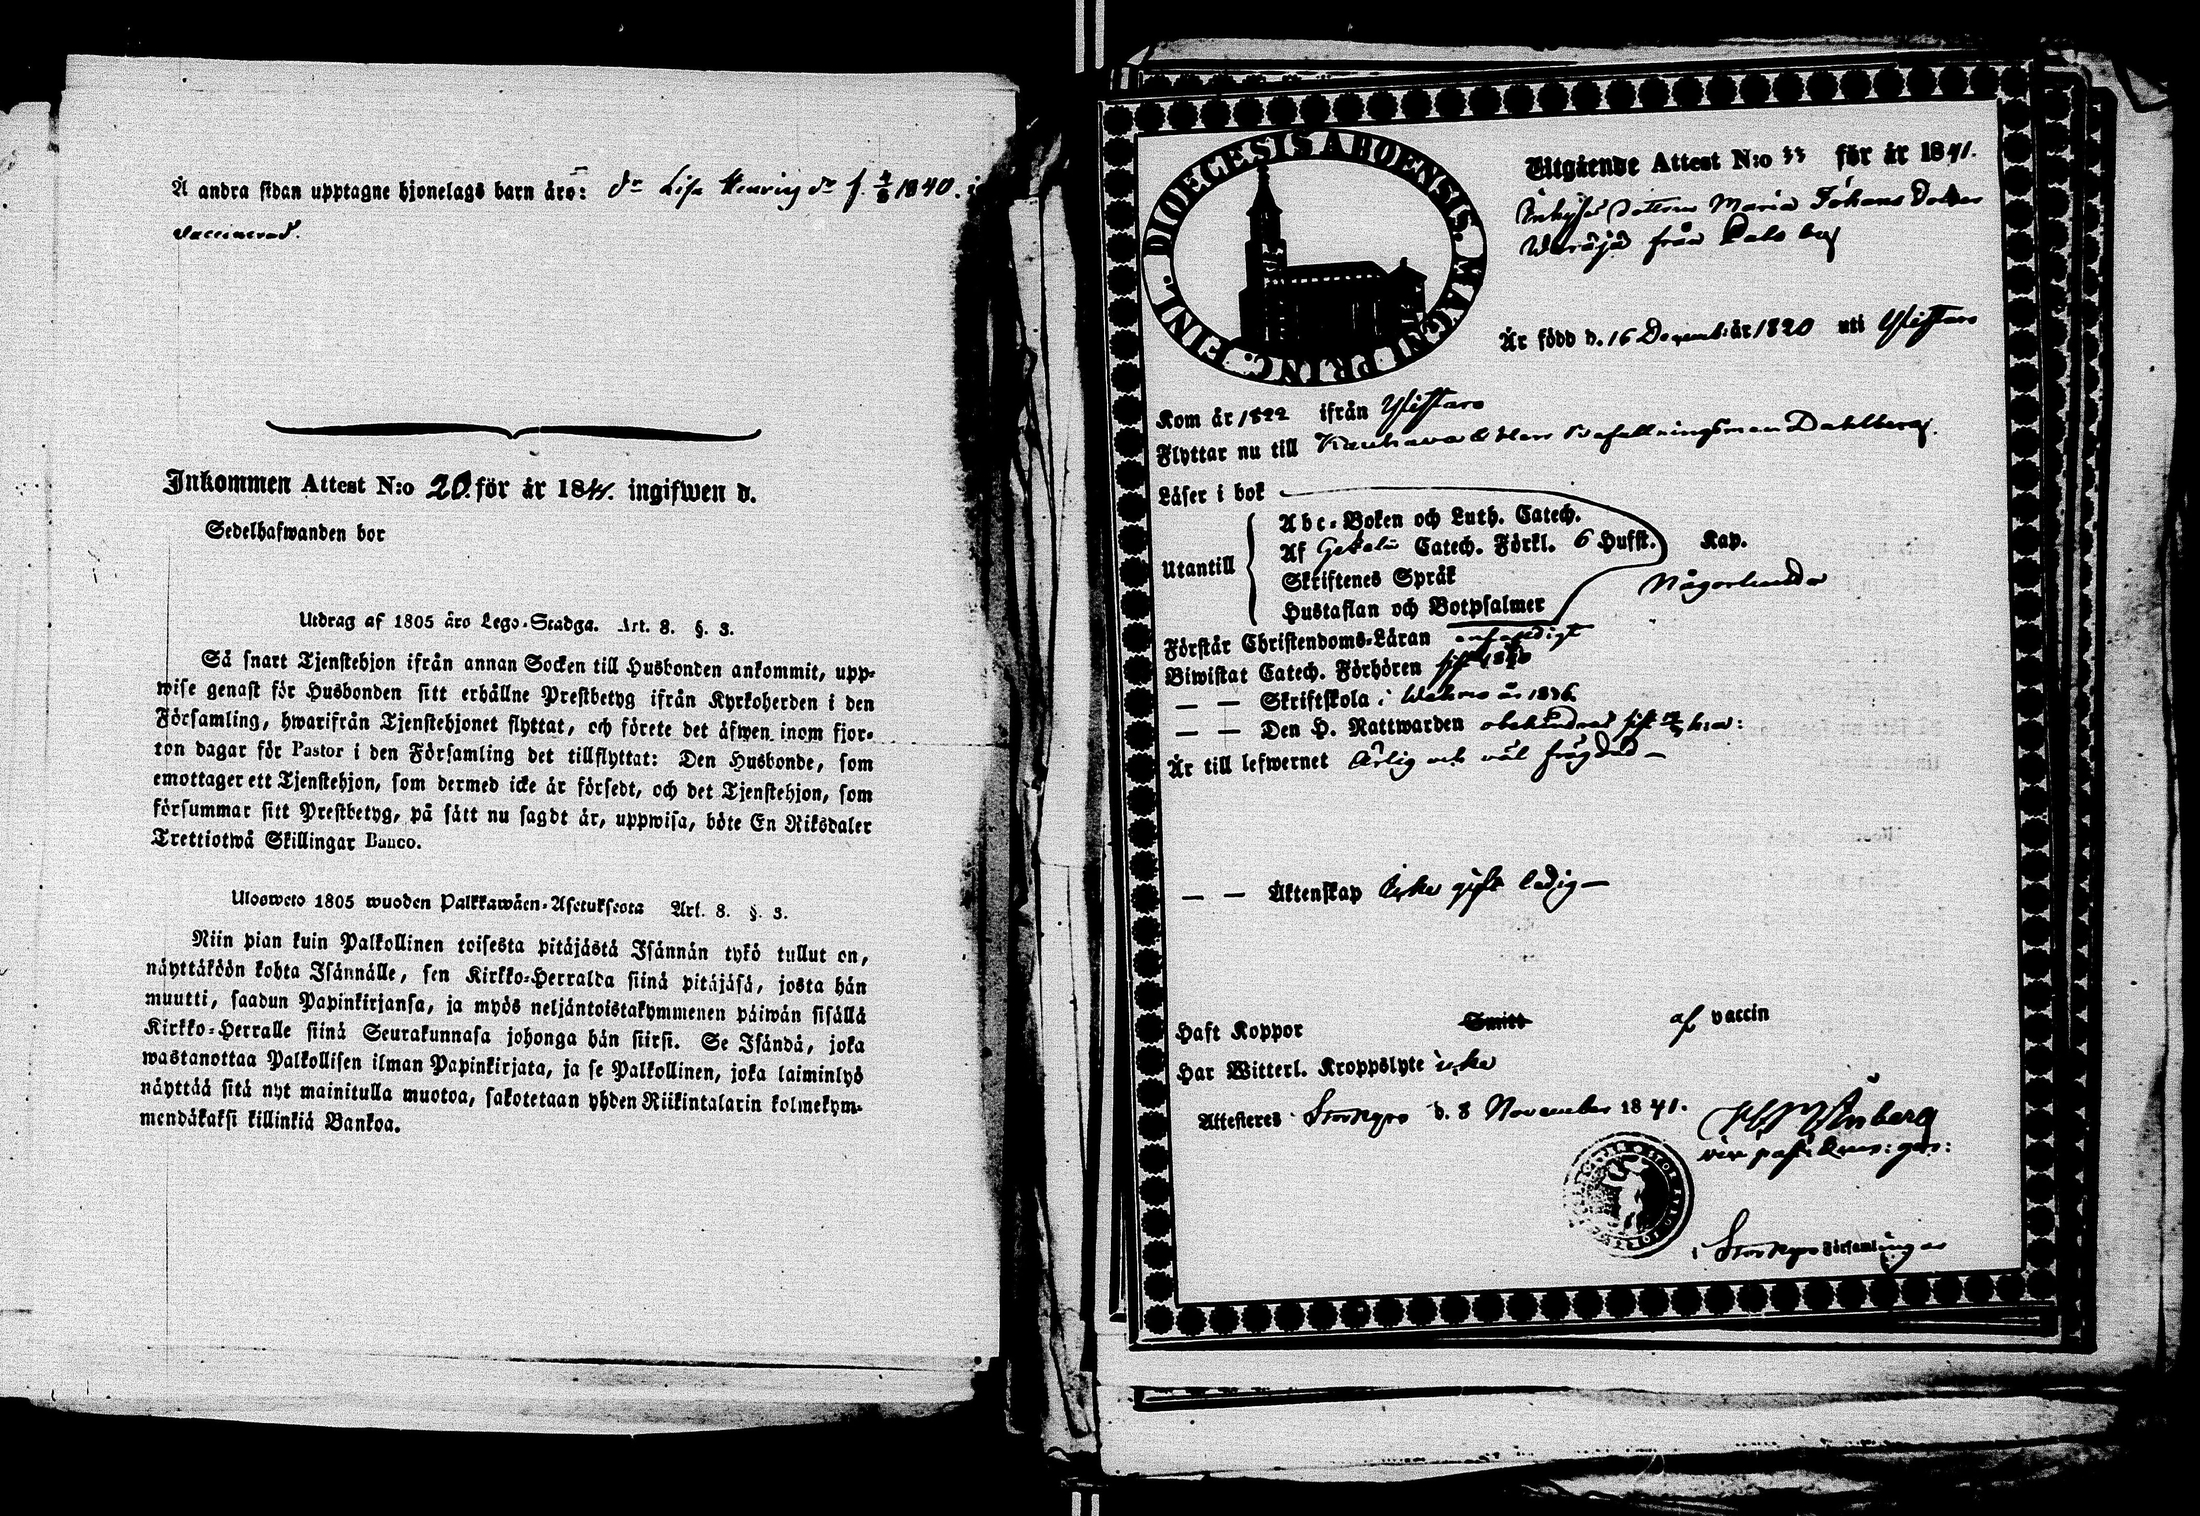 Å andra sidan upptagne hjonelags barn äro: dr Lisa Henrics dr f. 4/8 1840.
Vaccinerad.
Inkommen Attest N:o 20. för år 1841. ingifwen d.
Sedelhafwanden bor
Utdrag af 1805 års Lego-Stadga. Art. 8. §. 3.
Så snart Tjenstehjon ifrån annan Socken till Husbonden ankommit, upp-
wise genast för Husbonden sitt erhållne Prestbetyg ifrån Kyrkoherden i den
Församling, hwarifrån Tjenstehjonet flyttat, och förete det äfwen inom fjor-
ton dagar för Pastor i den Församling det tillflyttat: Den Husbonde, som
emottager ett Tjenstehjon, som dermed icke är försedt, och det Tjenstehjon, som
försummar sitt Prestbetyg, på sätt nu sagdt är, uppwisa, böte En Riksdaler
Trettiotwå Skillingar Banco.
Ulosweto 1805 wuoden Palkkawäen-Asetuksesta Art. 8. §. 3.
Niin pian kuin Palkollinen toisesta pitäjästä Isännän tykö tullut on,
näyttäköön kohta Isännälle, sen Kirkko-Herralda siinä pitäjäsä, josta hän
muutti, saadun Papinkirjansa, ja myös neljäntoistakymmenen päiwän sisällä
Kirkko-Herralle siinä Seurakunnasa johonga hän siirsi. Se Isändä, joka
wastanottaa Palkollisen ilman Papinkirjata, ja se Palkollinen, joka laiminlyö
näyttää sitä nyt mainitulla muotoa, sakotetaan yhden Riikintalarin kolmekym-
mendäkaksi killinkiä Bankoa.
DIOECESIS ABOENSIS. MAGNI PRINC. FINL.
Utgående Attest N:o 33 för år 1841.
Inhyses Dottren Maria Johans Dotter
från
Är född d. 16 Decemb: år 1820 uti Ylistaro
Kom år 1822 ifrån Ylistaro
Flyttar nu till Kauhava Herr Befallningsman Dahlberg.
Läser i bok
Utantill
Abc-Boken och Luth. Catech.
Af Catech. Förkl. 6 Hufst. Kap.
Skriftenes Språk
Någorlunda
Hustaflan och Botpsalmer
Förstår Christendoms-Läran
Biwistat Catech. Förhören sist
— — Skriftskola i år 1836
— — Den H. Nattwarden obehindrad sist
Är till lefwernet Ärlig och väl frägdad —
— — Äktenskap Icke gift ledig —
Haft Koppor Smitt af vaccin
Har Witterl. Kroppslyte icke
Attesteres Storkyro d. 8 November 1841.
i Storkyro Församlingar